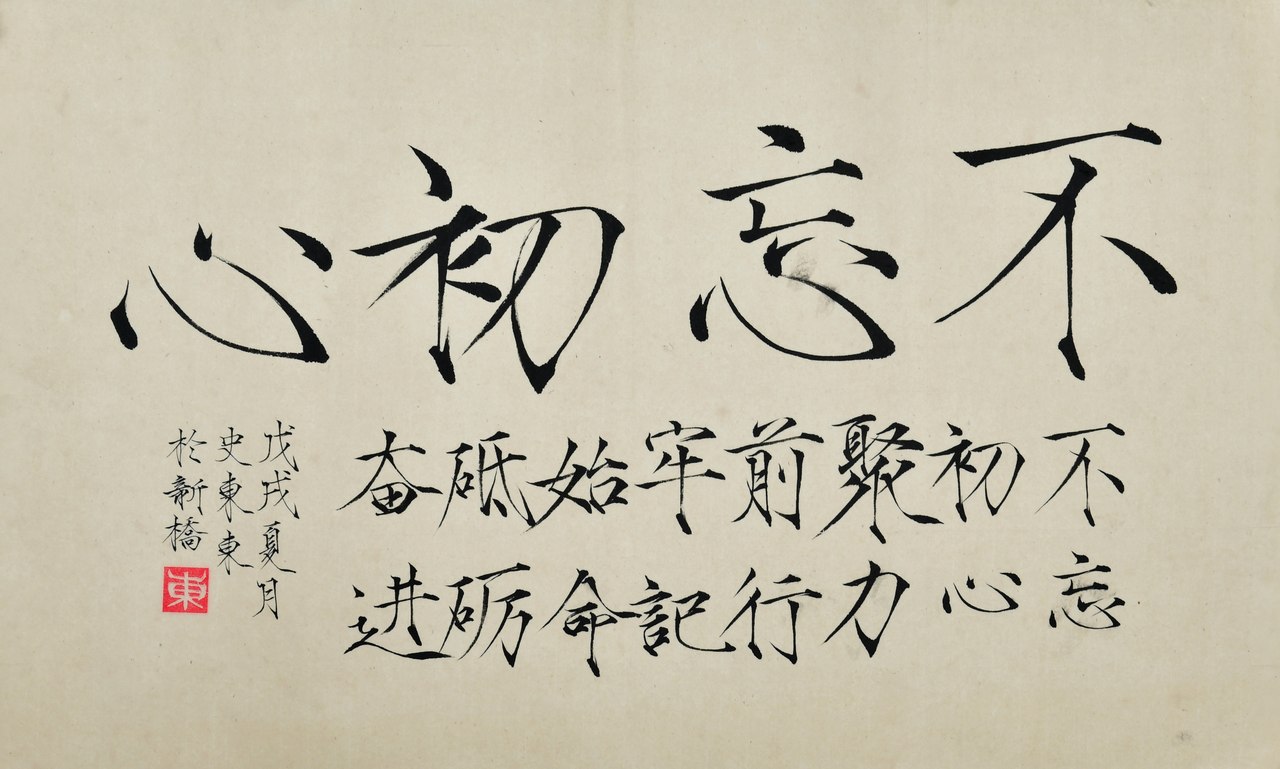 不忘初心
不忘
初心
聚力
前行
牢記
始命
砥砺
奋进
戊戌夏月
史東東
於新橋
東